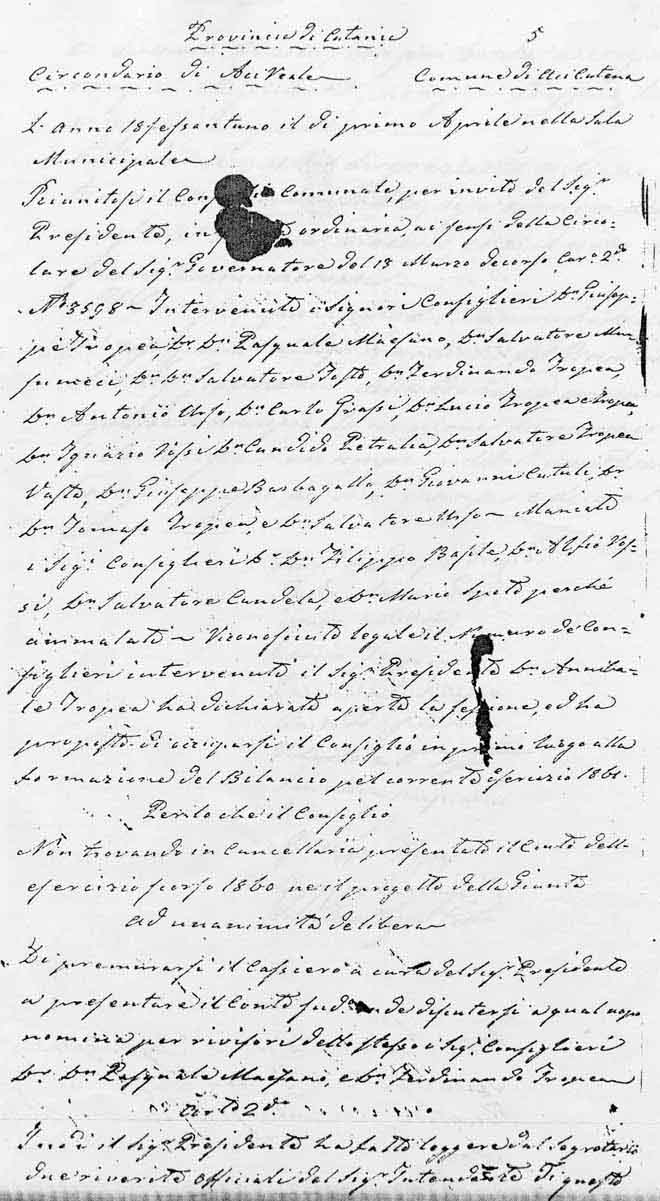 Provincia di Catania 5
Circondario di Aci Reale Comune di Aci Catena
L'Anno 18sessantuno il dì primo Aprile nella Sala
Municipale
Riunitosi il Comunale, per invito del Sigr
Presidente, in ordinaria, ai sensi della Circo=
lare del Sigr Governatore del 13 Marzo decorso Caro 2do
N. 3598 ~ Intervenuti i Signori Consiglieri Dn Giusep=
pe Tropea, Dr Dn Pasquale Maesano, Dn Salvatore Mu=
sumeci, Dr Dn Salvatore Tosto, Dn Ferdinando Tropea,
Dn Antonio Urso, Dn Carlo Grassi, Dn Lucio Tropea e Tropea,
Dn Ignazio Dn Candido Petralia, Dn Salvatore Tropea
Vasta, Dn Giuseppe Barbagallo, Dn Giovanni Cutuli, Dr
Dn Tomaso Tropea, e Dn Salvatore Urso ~ Mancati
i Sigi Consiglieri Dr Dn Filippo Basile, Dn Alfio
Dn Salvatore Candela, e Dn Mario perché
ammalati ~ Riconosciuto legale il Numero de Con=
siglieri intervenuti il Sigr Presidente Dn Anniba=
le Tropea ha dichiarato aperta la sessione, ed ha
proposto di occuparsi il Consiglio in primo luogo alla
formazione del Bilancio pel corrente esercizio 1861.
Perlo che il Consiglio
Non trovando in Cancellaria presentato il Conto dell
esercizio scorso 1860 ne il progetto della Giunta
Ad unanimità delibera
Di premurarsi il Cassiere a cura del Sigr Presidente
a presentare il Conto sudo onde discutersi a qual uopo
nomina per rivisori dello stesso i Sigi Consiglieri
Dr Dn Pasquale Maesano, e Dn Ferdinando Tropea
2do
Indi il Sigr Presidente ha fatto leggere dal Segretario
due riverite officiali del Sigr Intendente di questo